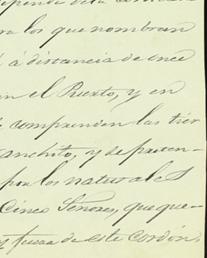 depende de la
ra los que nombran
á distancia de once
en el Puerto, y en
comprenden las tier
anchito, y de preten-
por los naturales
Cinco Señores, que que-
fuera de este cordón